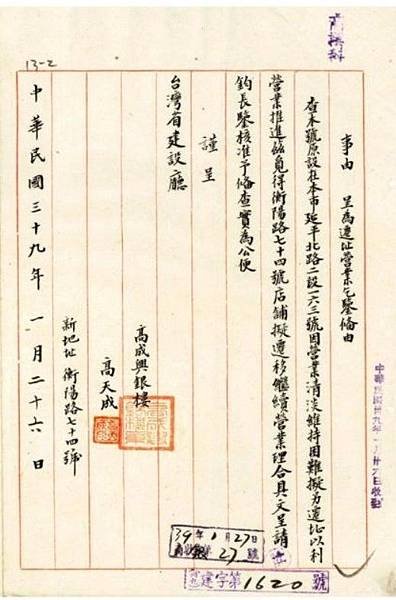 商務科
13-2
事由 呈為遷址營業乞鑒備由
查本號原設在本市延平北路二段一六三號因營業清淡維持困難擬另遷址以利
營業推進茲覓得衡陽路七十四號店舖擬遷移繼續營業理合具文呈請
鈞長鑒核准予備查實為公便
謹呈
台灣省建設廳
高成興銀樓
高天成
新地址 衡陽路七十四號
中華民國三十九年一月二十六日
中華民國卅九年一月廿七日收到
39年1月27日
27號
建字第1620號